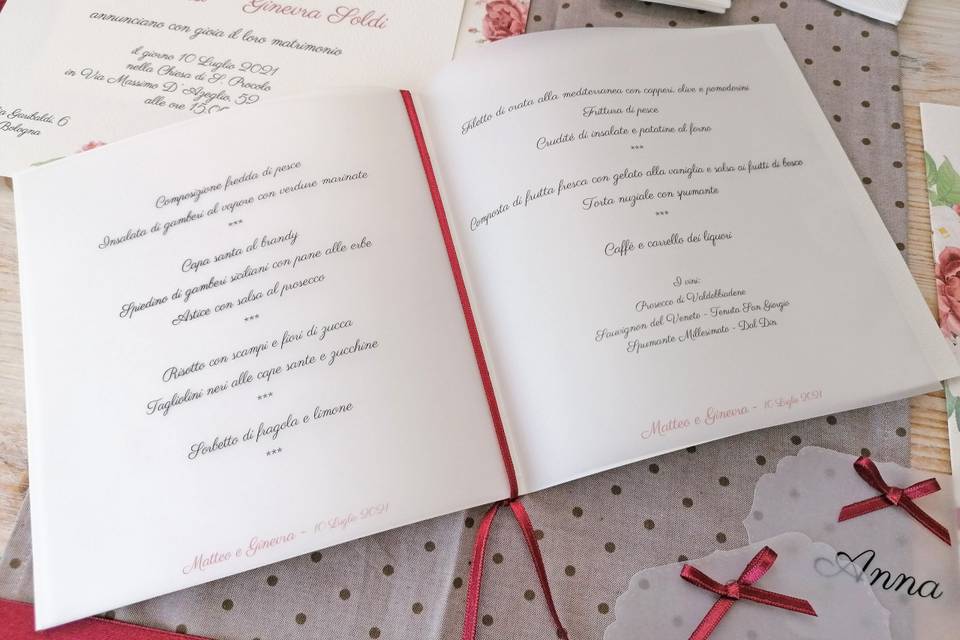 Ginevra Soldi
annunciano con gioia il loro matrimonio
il giorno 10 Luglio 2021
nella Chiesa di S. Procolo
in Via Massimo D'Azeglio, 59
alle ore 15.
Garibaldi, 6
Bologna
Composizione fredda di pesce
Insalata di gamberi al vapore con verdure marinate
***
Capa santa al brandy
Spiedino di gamberi siciliani con pane alle erbe
Astice con salsa al prosecco
***
Risotto con scampi e fiori di zucca
Tagliolini neri alle cape sante e zucchine
***
Sorbetto di fragola e limone
***
Matteo e Ginevra - 10 Luglio 2021
Filetto di orata alla mediterranea con capperi, olive e pomodorini
Frittura di pesce
Crudité di insalate e patatine al forno
***
Composta di frutta fresca con gelato alla vaniglia e salsa ai frutti di bosco
Torta nuziale con spumante
***
Caffè e carrello dei liquori
I vini:
Prosecco di Valdobbiadene
Sauvignon del Veneto - Tenuta San Giorgio
Spumante Millesimato - Dal Din
Matteo e Ginevra - 10 Luglio 2021
Anna